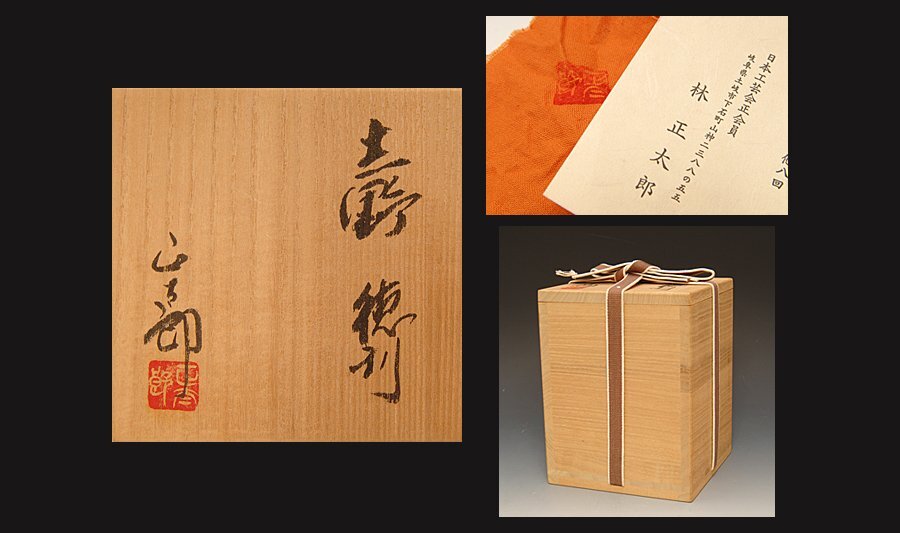 志野 徳利
正太郎
他八回
日本工芸会正会員
岐阜県土岐市下石町山神二三八八の五五
林 正太郎